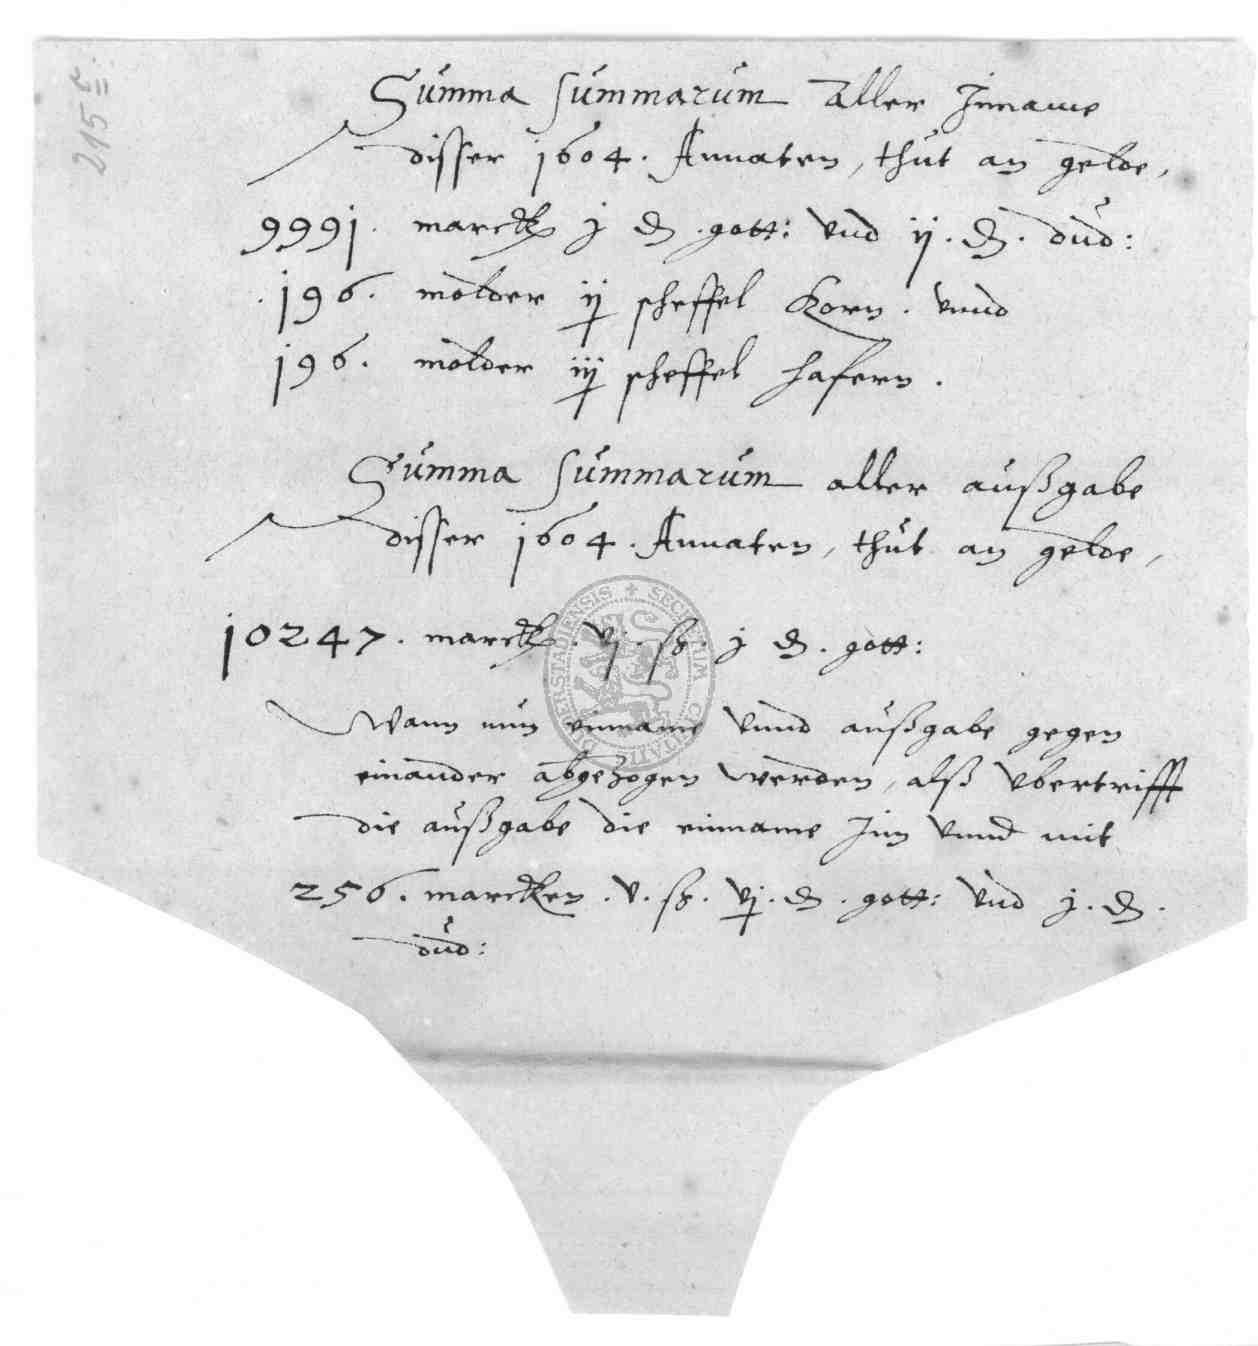 215 c
Summa summarum aller Inname
disser 1604. Annaten, thut an gelde,
9991. marck j ₰. gott: vnd ij. ₰. dud:
196. molder ij scheffel Korn. vnnd
196. molder iij scheffel hafern.
Summa summarum aller außgabe
disser 1604. Annaten, thut an gelde,
10247. marck. vj. ß. j ₰. gott:
Wann nun einname vnnd außgabe gegen
einander abgezogen werden, alß vbertrifft
die außgabe die einname Inn vnnd mit
256. marcken. v. ß. vj. ₰. gott: vnd j. ₰.
dud:
SECRETUM CIVITATIS DUDERSTADIENSIS